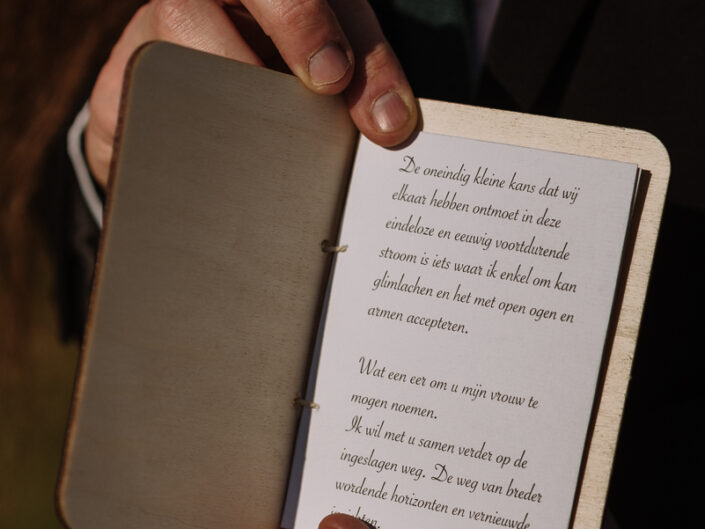 De oneindig kleine kans dat wij
elkaar hebben ontmoet in deze
eindeloze en eeuwig voortdurende
stroom is iets waar ik enkel om kan
glimlachen en het met open ogen en
armen accepteren.
Wat een eer om u mijn vrouw te
mogen noemen.
Ik wil met u samen verder op de
ingeslagen weg. De weg van breder
wordende horizonten en vernieuwde